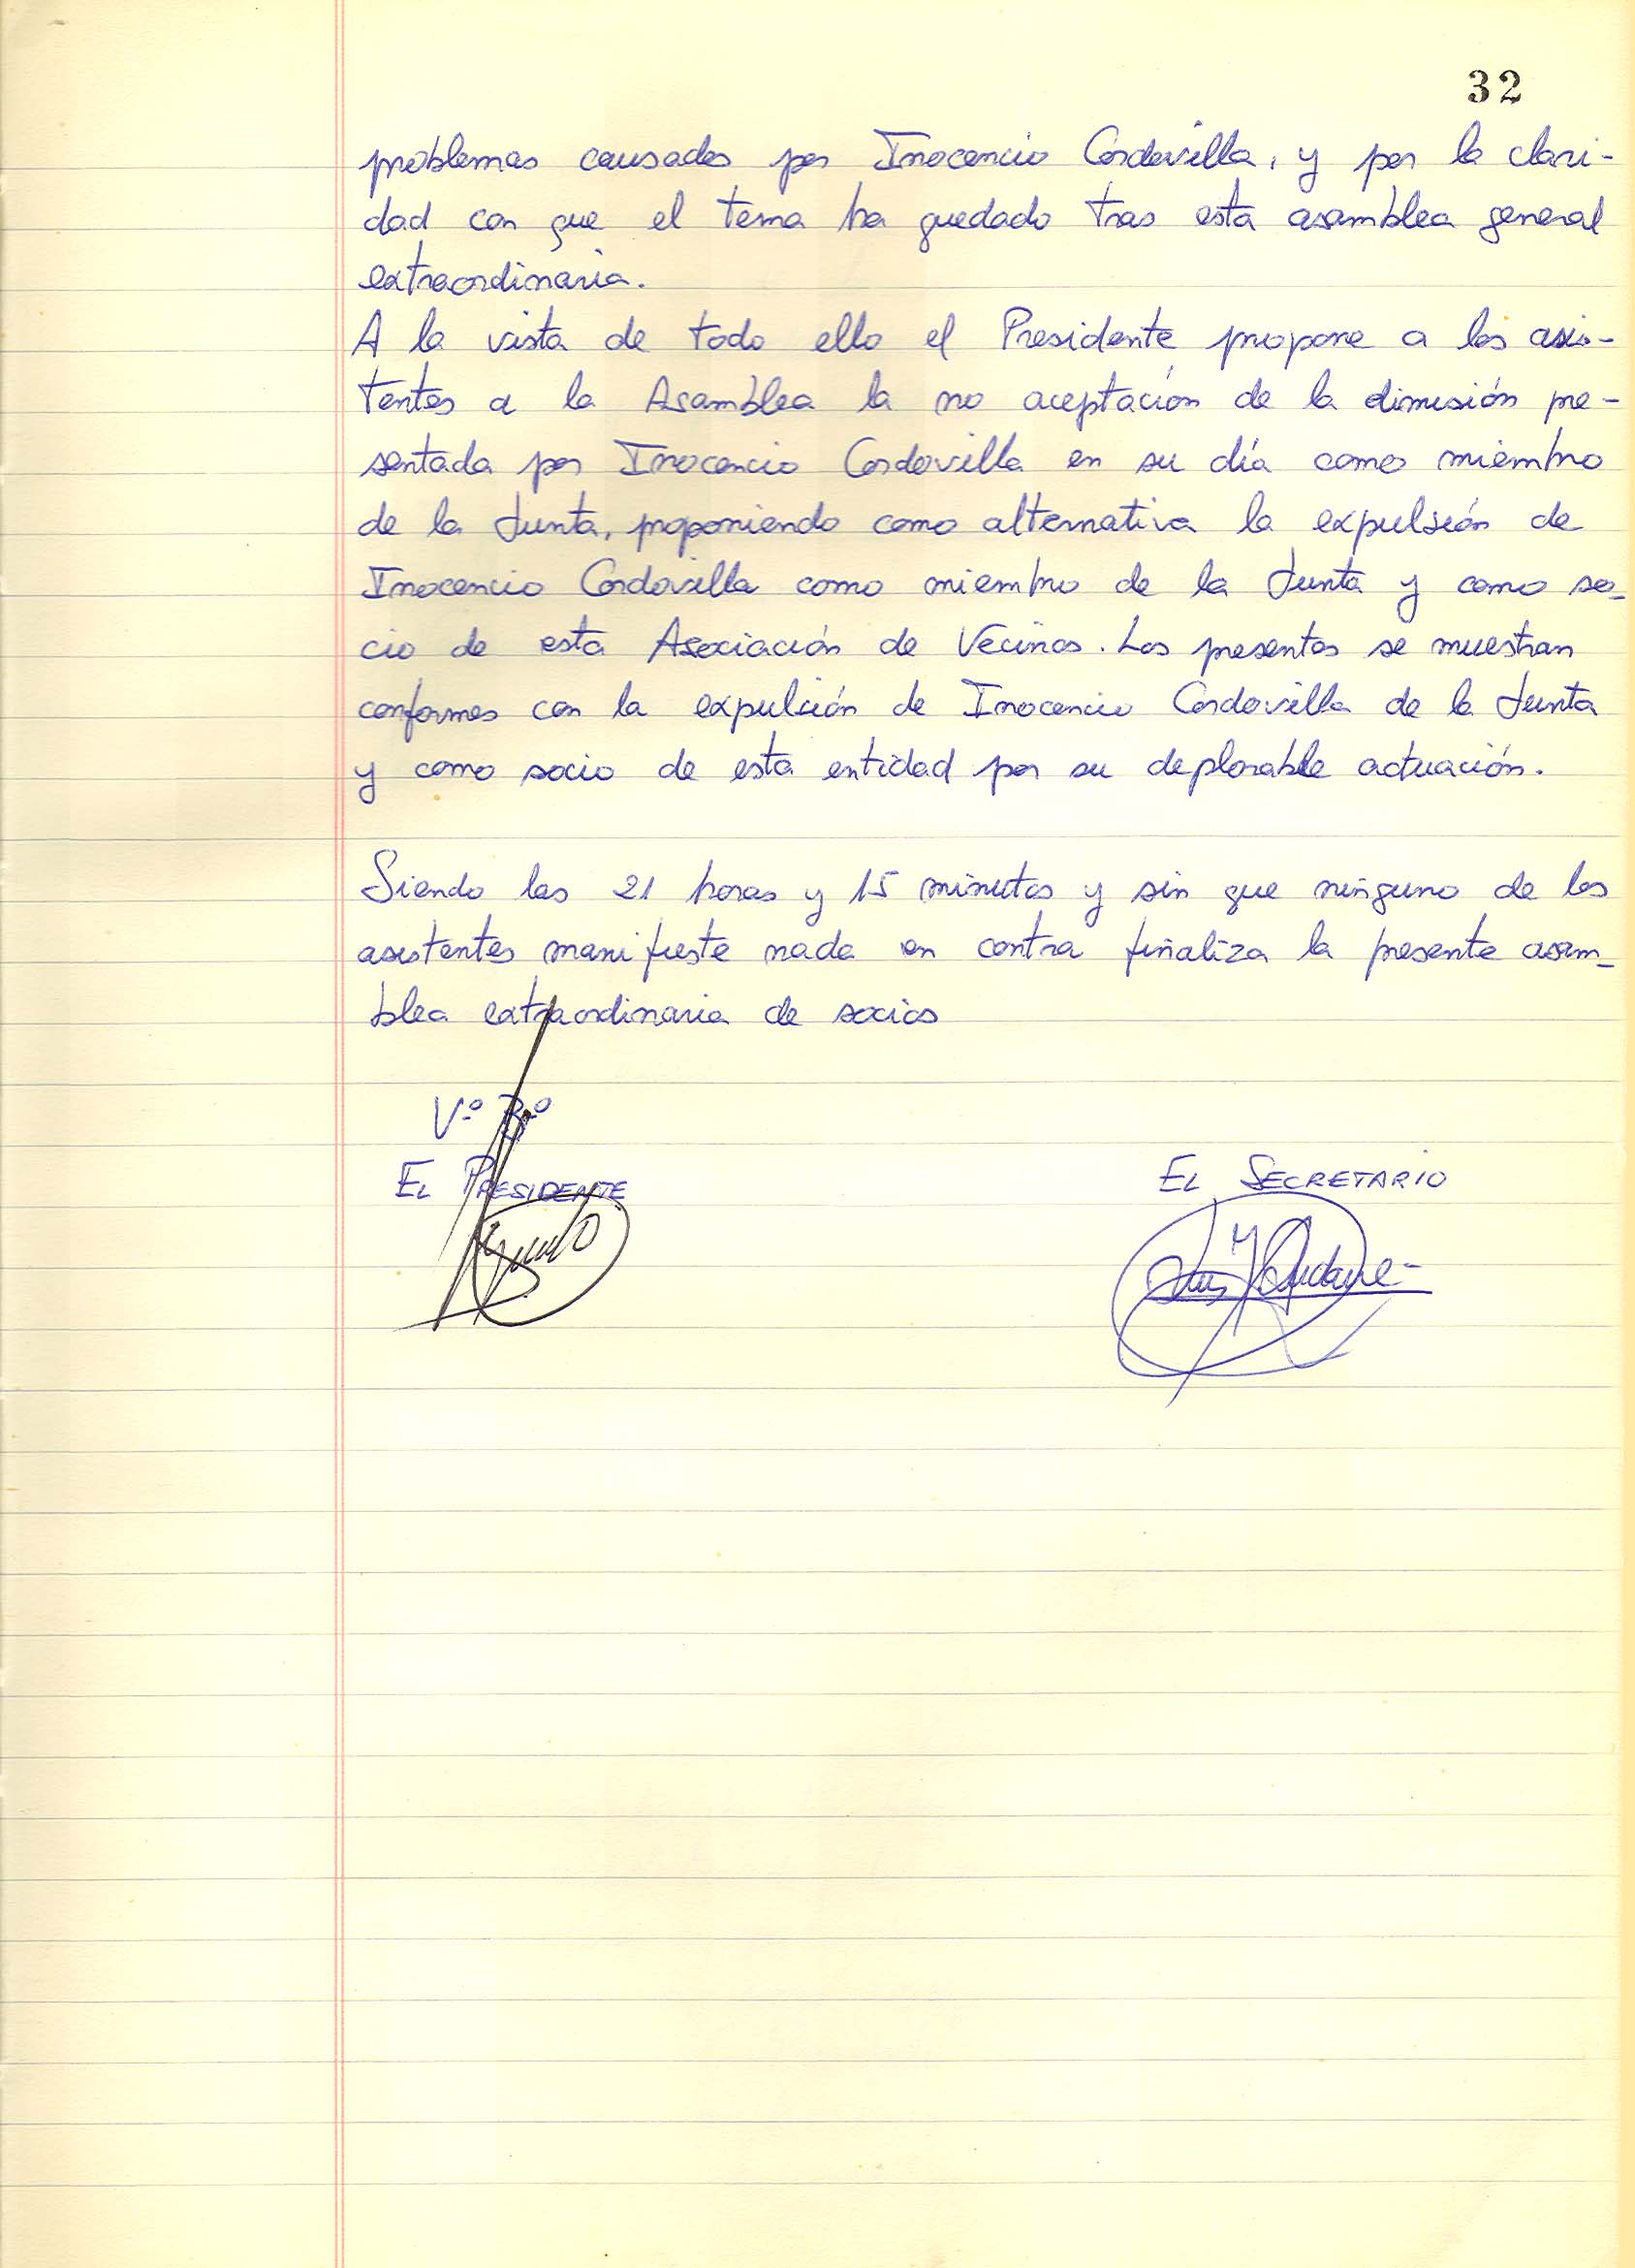 32
problemas causados por Inocencio Cordovilla, y por la clari-
dad con que el tema ha quedado tras esta asamblea general
extraordinaria.
A la vista de todo ello el Presidente propone a los asis-
tentes a la Asamblea la no aceptación de la dimisión pre-
sentada por Inocencio Cordovilla en su día como miembro
de la Junta, proponiendo como alternativa la expulsión de
Inocencio Cordovilla como miembro de la Junta y como so-
cio de esta Asociación de Vecinos. Los presentes se muestran
conformes con la expulsión de Inocencio Cordovilla de la Junta
y como socio de esta entidad por su deplorable actuación.
Siendo las 21 horas y 15 minutos y sin que ninguno de los
asistentes manifieste nada en contra finaliza la presente asam-
blea extraordinaria de socios
Vº Bº
EL PRESIDENTE
EL SECRETARIO